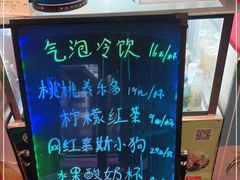 气泡冷饮 16元/杯
桃桃养乐多 19元/杯
柠檬红茶 9元/杯
网红慕斯小狗 29元/只
水果酸奶杯